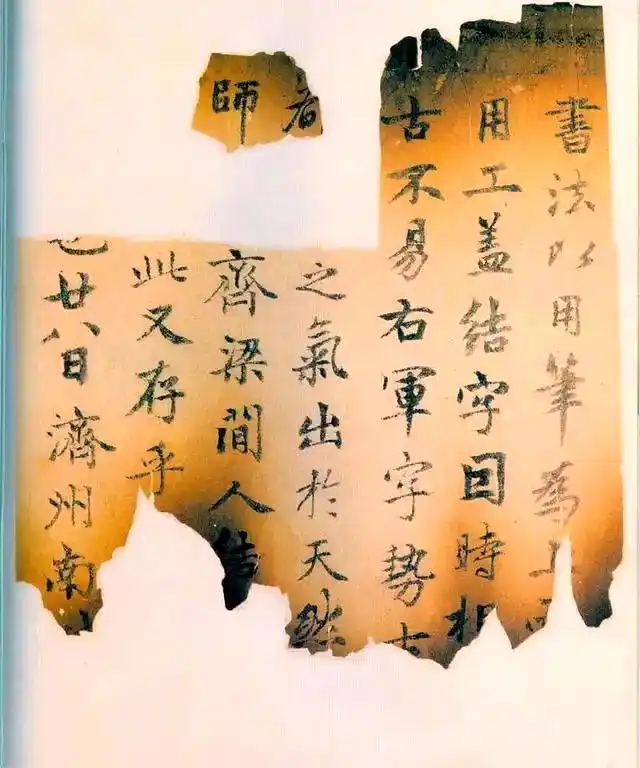 書法以用筆為上而
用工盖結字囙時相
古不易右軍字勢古
者之氣出於天然
師齊梁間人結
此又存乎
也廿八日濟州南